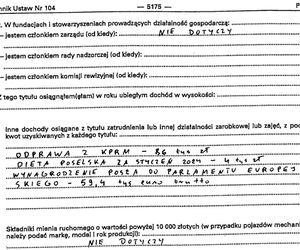 nnik Ustaw Nr 104 — 5175 — P
. W fundacjach i stowarzyszeniach prowadzących działalność gospodarczą:
– jestem członkiem zarządu (od kiedy): NIE DOTYCZY
– jestem członkiem rady nadzorczej (od kiedy):
– jestem członkiem komisji rewizyjnej (od kiedy):
Z tego tytułu osiągnąłem(ęłam) w roku ubiegłym dochód w wysokości:
Inne dochody osiągane z tytułu zatrudnienia lub innej działalności zarobkowej lub zajęć, z pod
kwot uzyskiwanych z każdego tytułu:
ODPRAWA Z KPRM – 86 tys zł
DIETA POSELSKA ZA STYCZEŃ 2024 – 4 tys zł
WYNAGRODZENIE POSŁA DO PARLAMENTU EUROPEJ
SKIEGO – 59,4 tys euro
Składniki mienia ruchomego o wartości powyżej 10 000 złotych (w przypadku pojazdów mechan
należy podać markę, model i rok produkcji):
NIE DOTYCZY